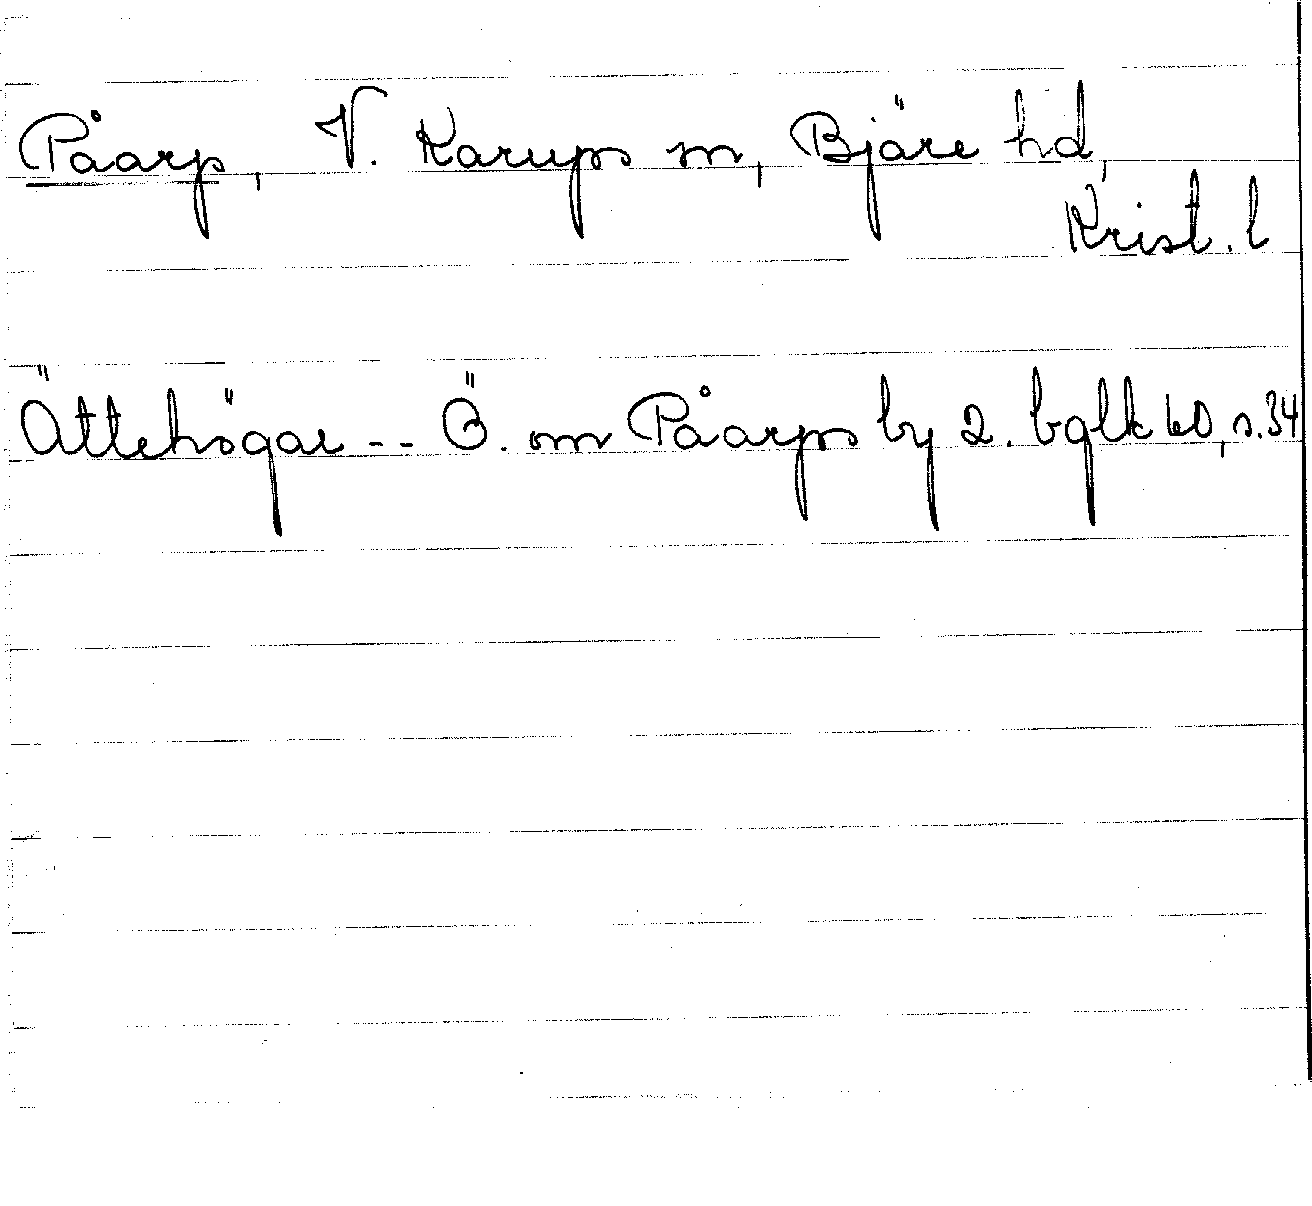 Påarp, V. Karups sn, Bjäre hd,
Krist. l
Ättehögar -- Ö. om Påarps by 2. bglk 60, s. 34